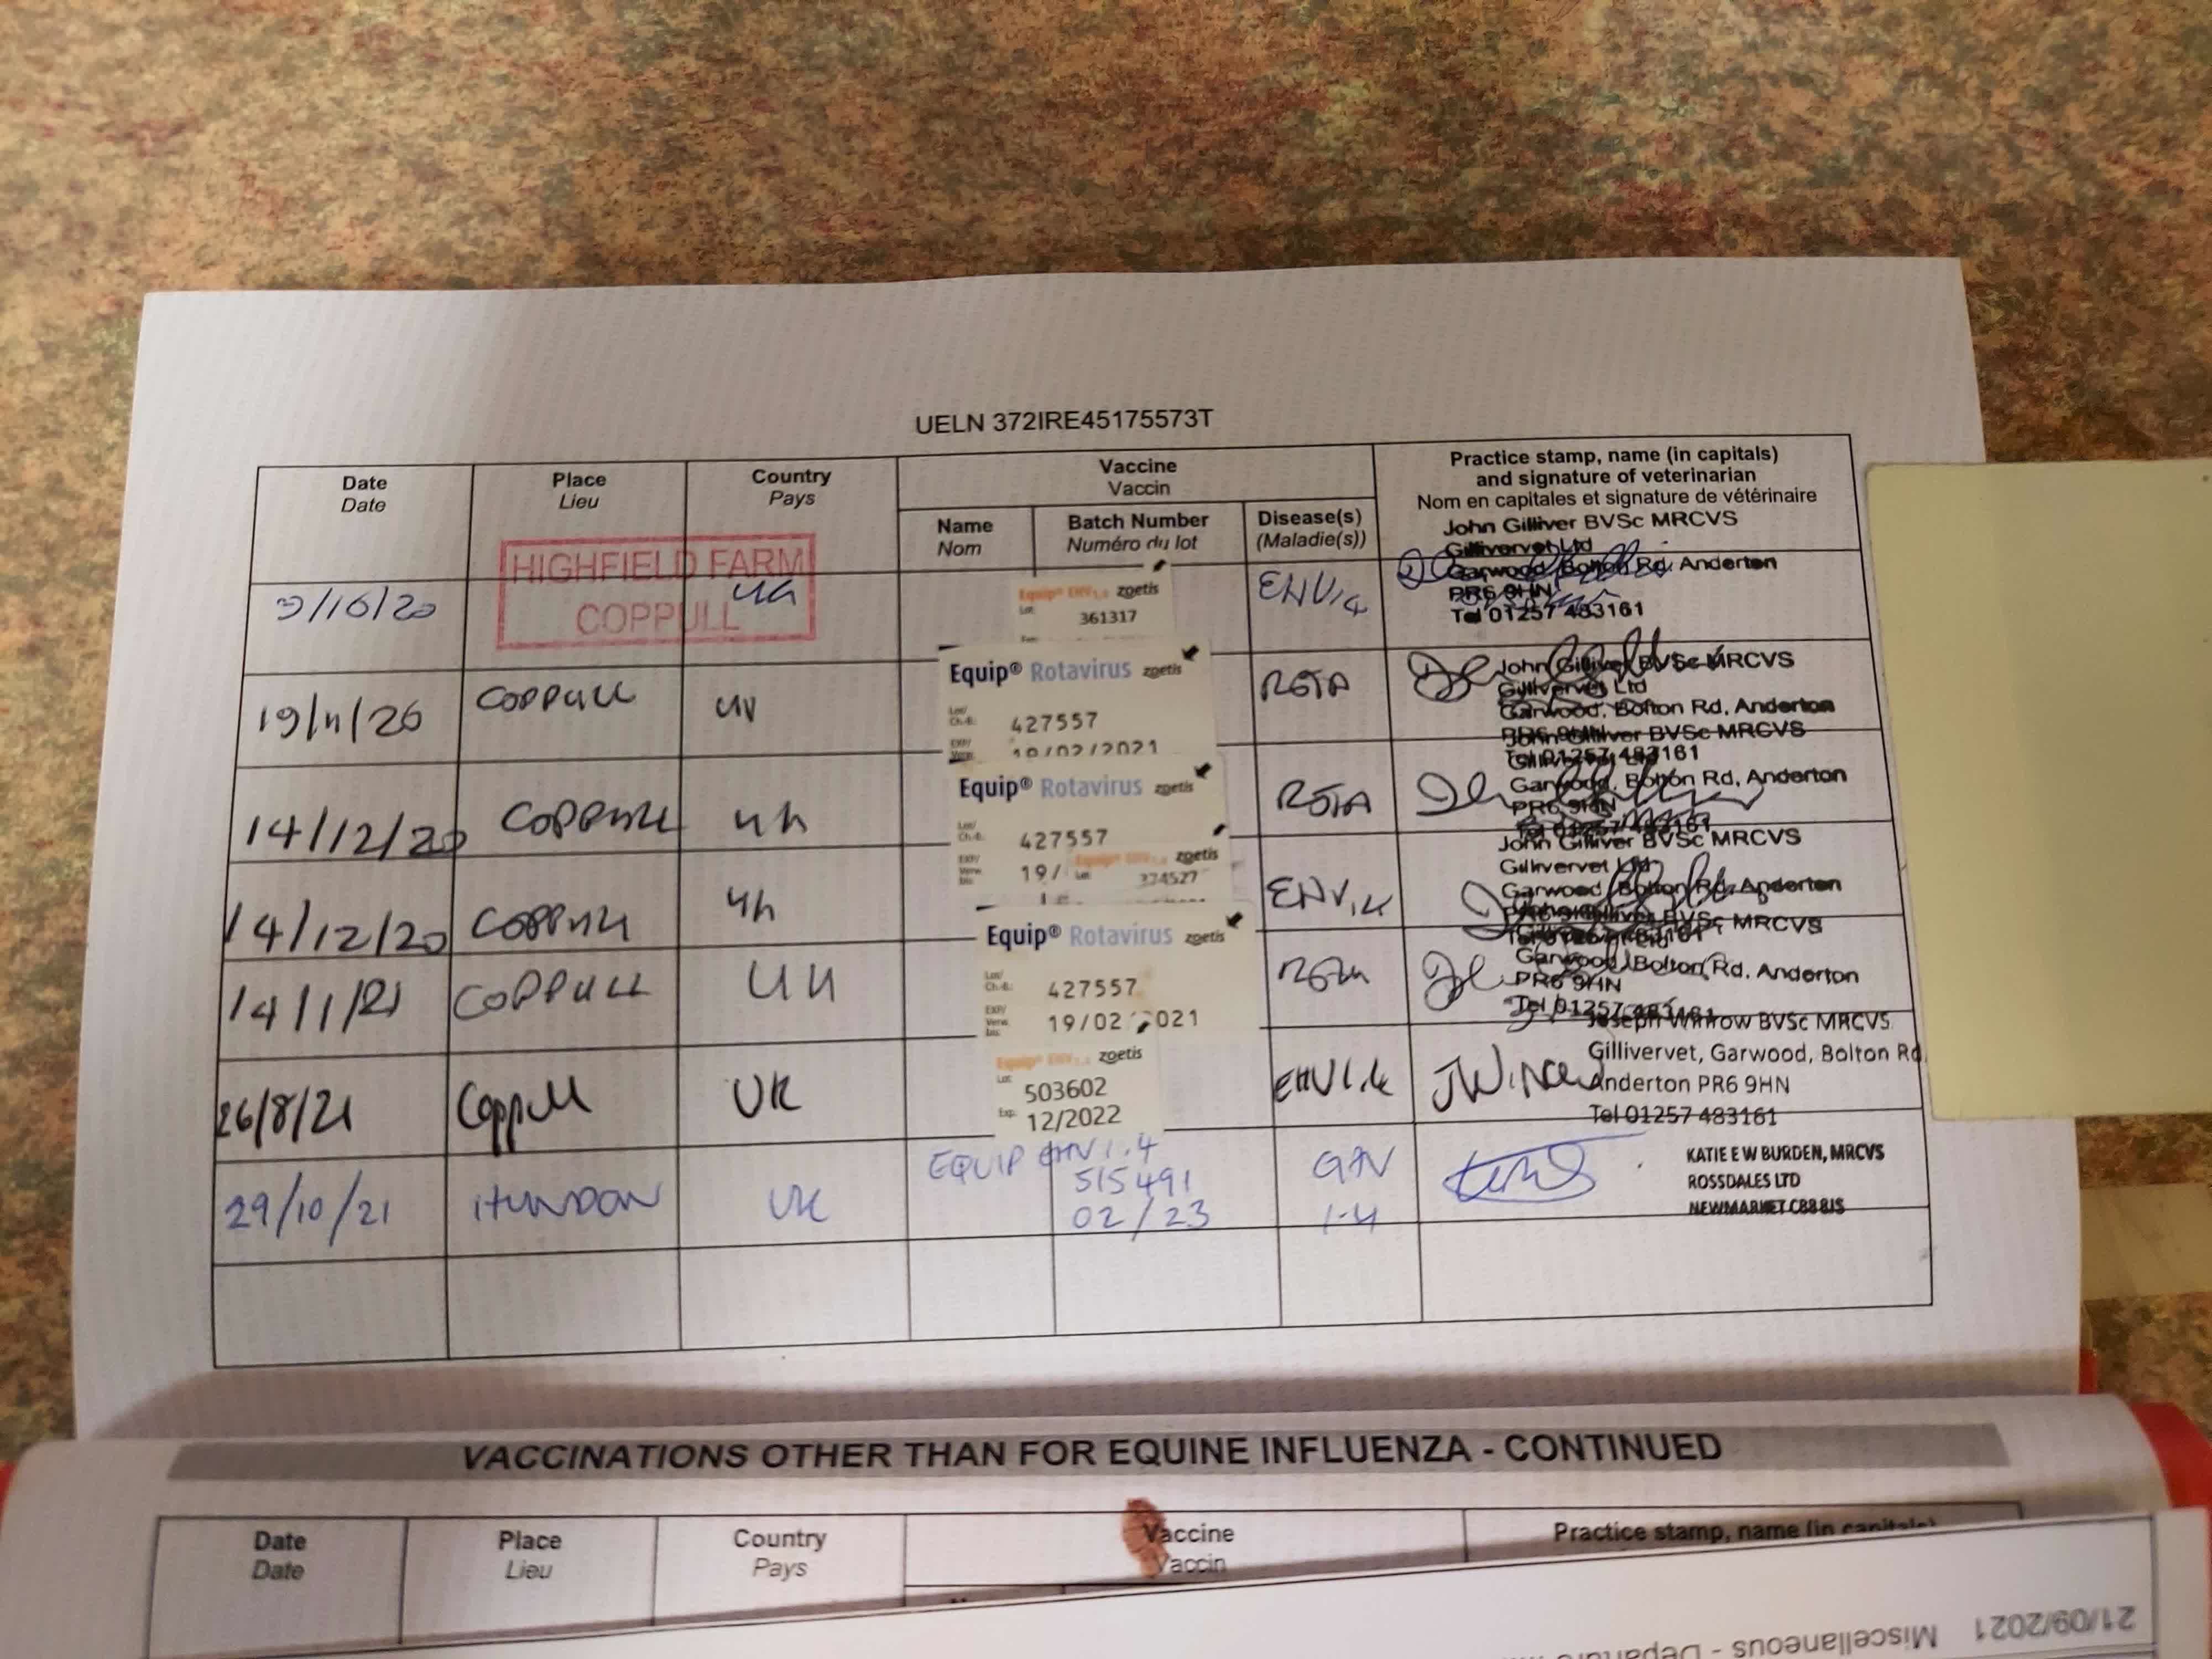 UELN 372IRE45175573T
Date Place Country Vaccine Practice stamp, name (in capitals)
Date Lieu Pays Vaccin and signature of veterinarian
Nom en capitales et signature de vétérinaire
Name Batch Number Disease(s)
Nom Numéro du lot (Maladie(s))
John Gilliver BVSc MRCVS
Gillivervet Ltd
Garwood, Bolton Rd, Anderton
PR6 9HN
Tel 01257 483161
HIGHFIELD FARM
COPPULL
3/10/20 UK
Equip® EHV1,4 zoetis
Lot: 361317
EHV1,4
19/11/20 COPPULL UK
Equip® Rotavirus zoetis
Lot/
Ch.-B.: 427557
EXP/
Verw. 19/02/2021
ROTA
John Gilliver BVSc MRCVS
Gillivervet Ltd
Garwood, Bolton Rd, Anderton
PR6 9HN
Tel 01257 483161
14/12/20 COPPULL UK
Equip® Rotavirus zoetis
Lot/
Ch.-B.: 427557
EXP/
Verw. 19/
bis:
ROTA
John Gilliver BVSc MRCVS
Gillivervet Ltd
Garwood, Bolton Rd, Anderton
PR6 9HN
Tel 01257 483161
14/12/20 COPPULL UK
Equip® EHV1,4 zoetis
Lot: 374527
EHV1,4
John Gilliver BVSc MRCVS
Gillivervet Ltd
Garwood, Bolton Rd, Anderton
PR6 9HN
Tel 01257 483161
14/1/21 COPPULL UK
Equip® Rotavirus zoetis
Lot/
Ch.-B.: 427557
EXP/
Verw. 19/02 021
bis:
ROTA
John Gilliver BVSc MRCVS
Gillivervet Ltd
Garwood, Bolton Rd, Anderton
PR6 9HN
Tel 01257 483161
26/8/21 Coppull UK
Equip® EHV1,4 zoetis
Lot: 503602
Exp: 12/2022
EHV1.4
Joseph Winrow BVSc MRCVS
Gillivervet, Garwood, Bolton Rd
Anderton PR6 9HN
Tel 01257 483161
29/10/21 HUNDON UK
EQUIP EHV1.4
515491
02/23
1-4
KATIE E W BURDEN, MRCVS
ROSSDALES LTD
NEWMARKET CB8 8JS
VACCINATIONS OTHER THAN FOR EQUINE INFLUENZA - CONTINUED
Date Place Country Vaccine Practice stamp, name (in capitals)
Date Lieu Pays Vaccin
21/09/2021 Miscellaneous -